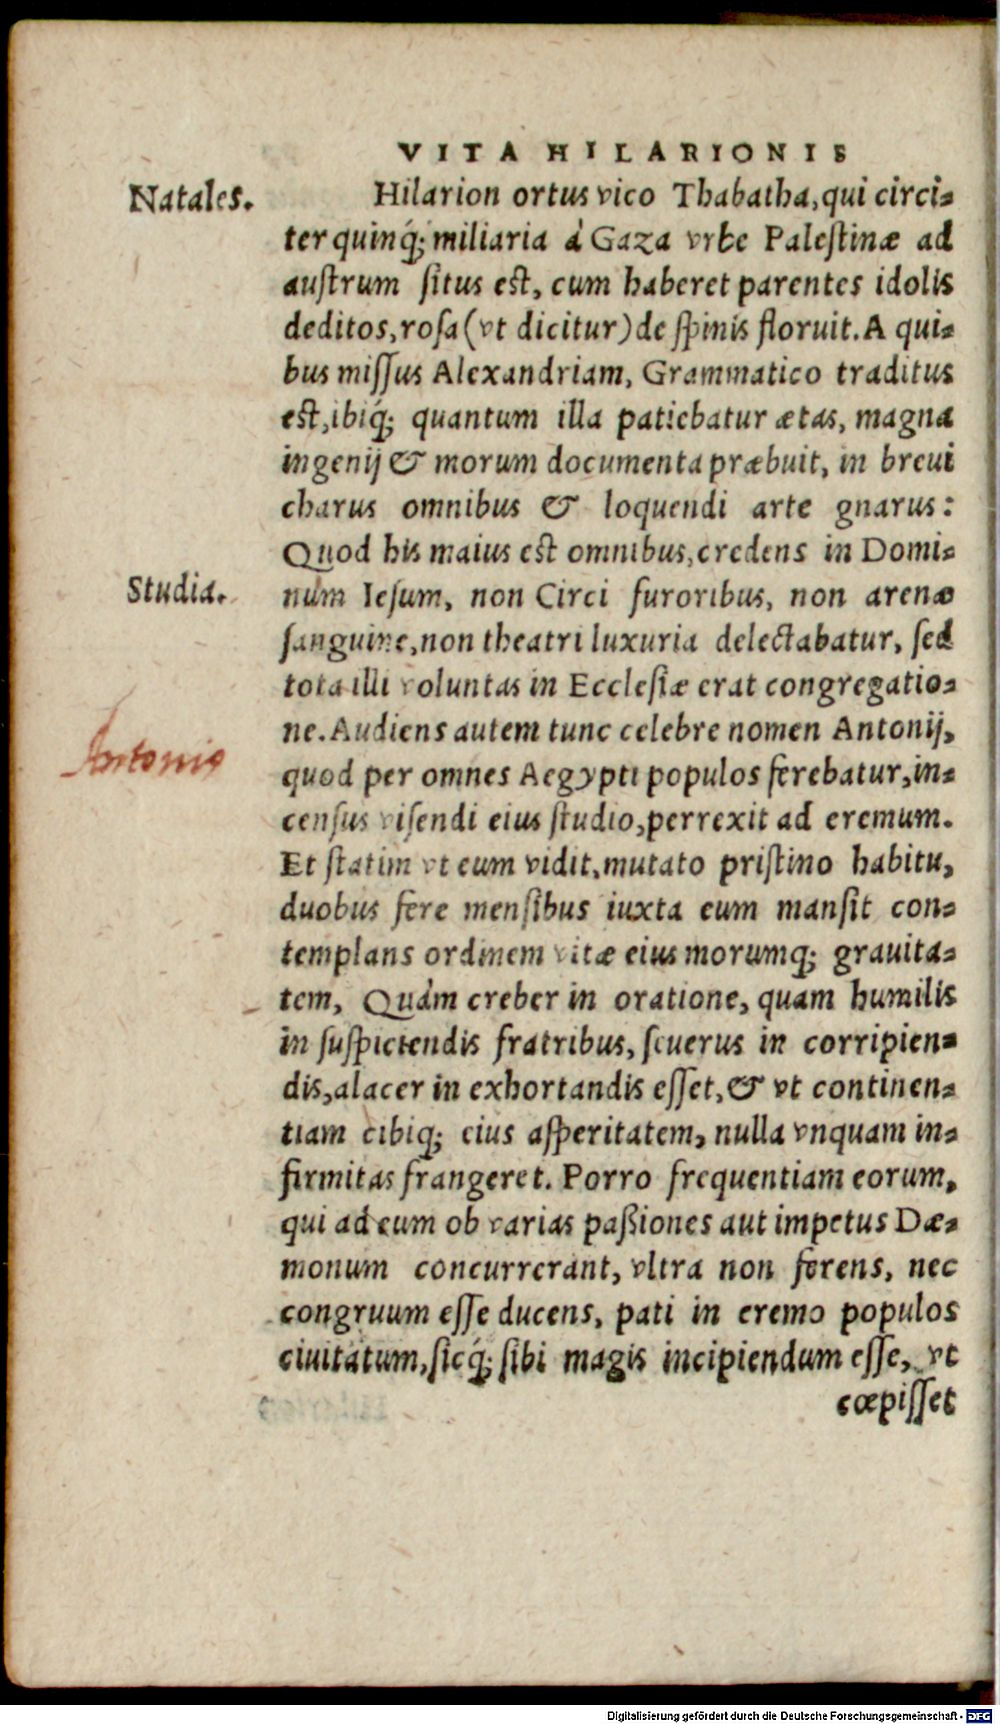 VITA HILARIONIS
Natales.
Hilarion ortus vico Thabatha, qui circi-
ter quinq́; miliaria à Gaza vrbe Palestinæ ad
austrum situs est, cum haberet parentes idolis
deditos, rosa (vt dicitur) de spinis floruit. A qui-
bus missus Alexandriam, Grammatico traditus
est, ibiq́; quantum illa patiebatur ætas, magna
ingenij & morum documenta præbuit, in breui
charus omnibus & loquendi arte gnarus:
Quod his maius est omnibus, credens in Domi-
Studia.
num Iesum, non Circi furoribus, non arenæ
sanguine, non theatri luxuria delectabatur, sed
tota illi voluntas in Ecclesiæ erat congregatio-
ne. Audiens autem tunc celebre nomen Antonij,
Antonio
quod per omnes Aegypti populos ferebatur, in-
census visendi eius studio, perrexit ad eremum.
Et statim vt eum vidit, mutato pristino habitu,
duobus fere mensibus iuxta eum mansit con-
templans ordinem vitæ eius morumq; grauita-
tem, Quàm creber in oratione, quam humilis
in suspiciendis fratribus, seuerus in corripien-
dis, alacer in exhortandis esset, & vt continen-
tiam cibiq; eius asperitatem, nulla vnquam in-
firmitas frangeret. Porro frequentiam eorum,
qui ad eum ob varias paßiones aut impetus Dæ-
monum concurrerant, vltra non ferens, nec
congruum esse ducens, pati in eremo populos
ciuitatum, sicq́; sibi magis incipiendum esse, vt
cœpisset
Digitalisierung gefördert durch die Deutsche Forschungsgemeinschaft - DFG